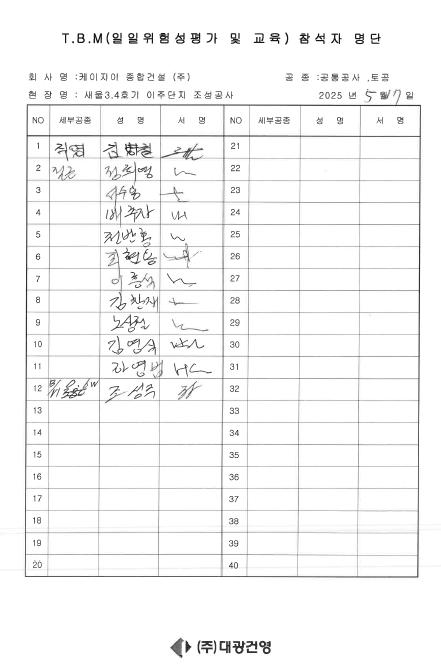 T.B.M(일일위험성평가 및 교육) 참석자 명단
회 사 명 :케이지이 종합건설 (주) 공 종 :공통공사 ,토공
현 장 명 : 새울3.4호기 이주단지 조성공사 2025 년 5 월 17 일
NO 세부공종 성 명 서 명 NO 세부공종 성 명 서 명
1 직영 21
2 정희영 22
3 23
4 24
5 25
6 최현용 26
7 이흥석 27
8 김찬재 28
9 노성철 29
10 김영식 30
11 31
12 조성주 32
13 33
14 34
15 35
16 36
17 37
18 38
19 39
20 40
(주)대광건영